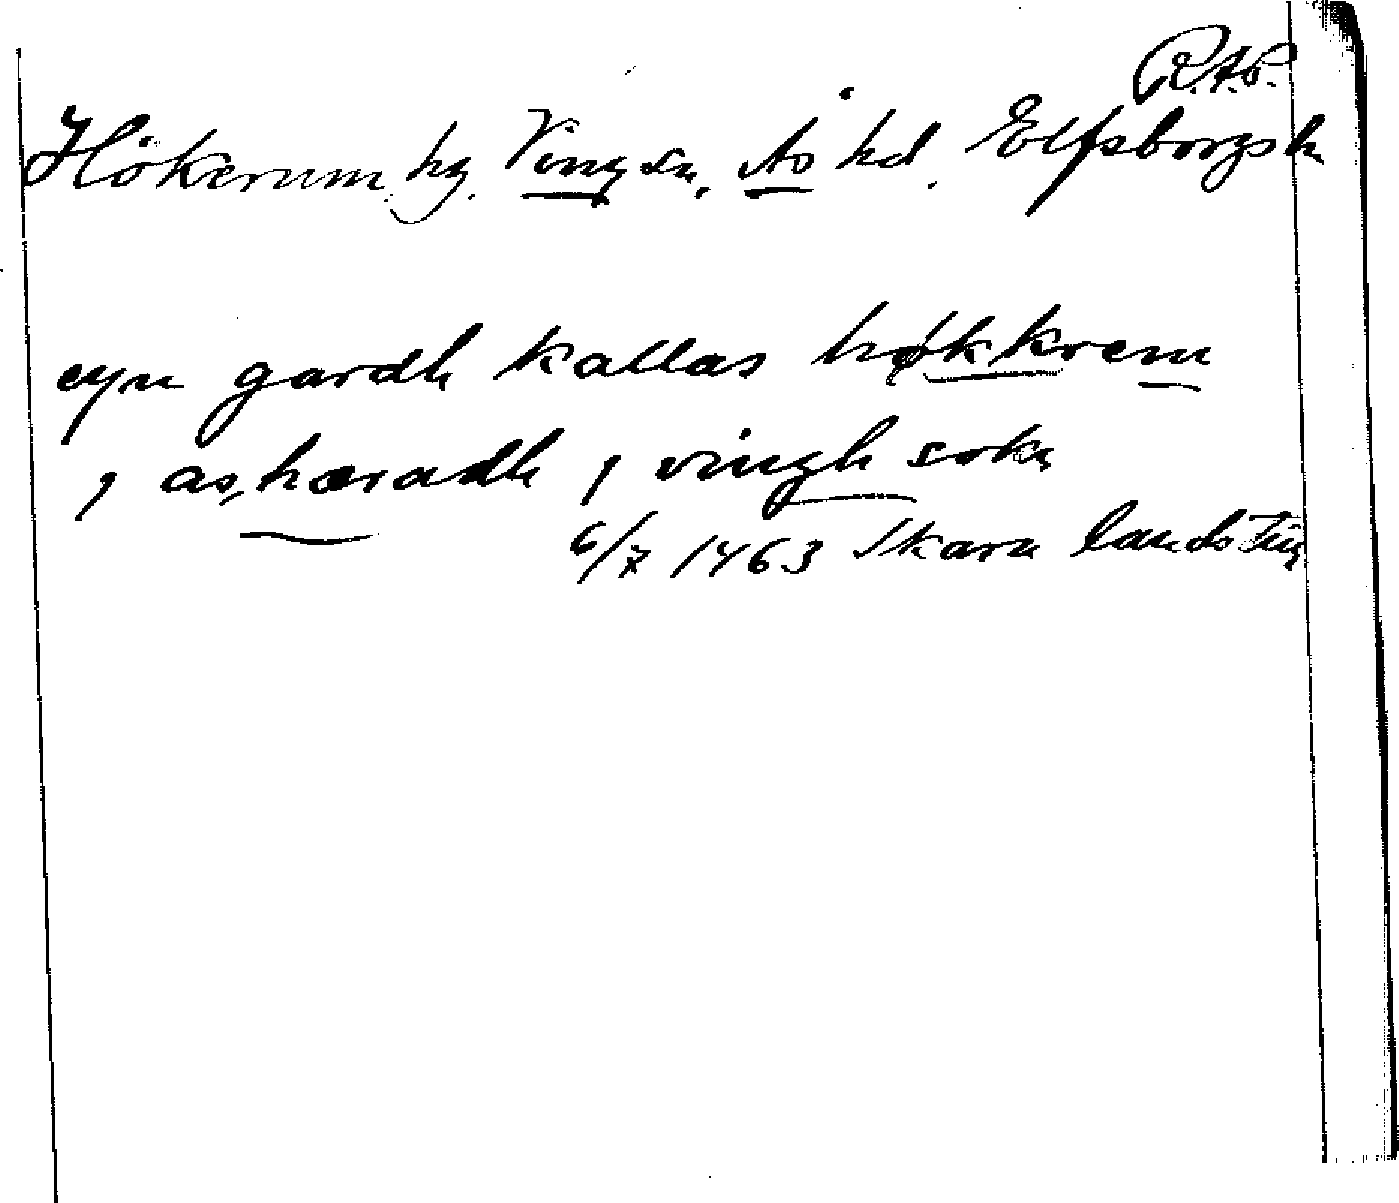 R.A.P.
Hökerum, hg. Ving sn, Ås hd. Elfsborgs l.
eyn gardh kallas høkkrem
j as,hæradh j vingh sokn
6/7 1463 Skara landsting